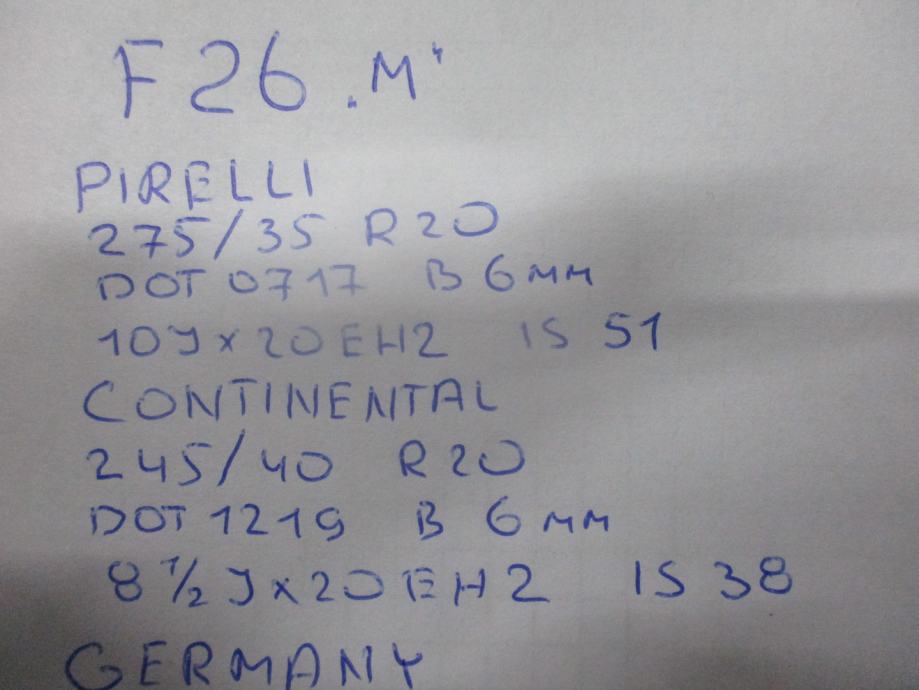 F26.M'
PIRELLI
275/35 R20
DOT 0717 B 6мм
10J x 20 EH2 IS 51
CONTINENTAL
245/40 R20
DOT 1219 B 6мм
8 1/2 J x 20 EH2 IS 38
GERMANY